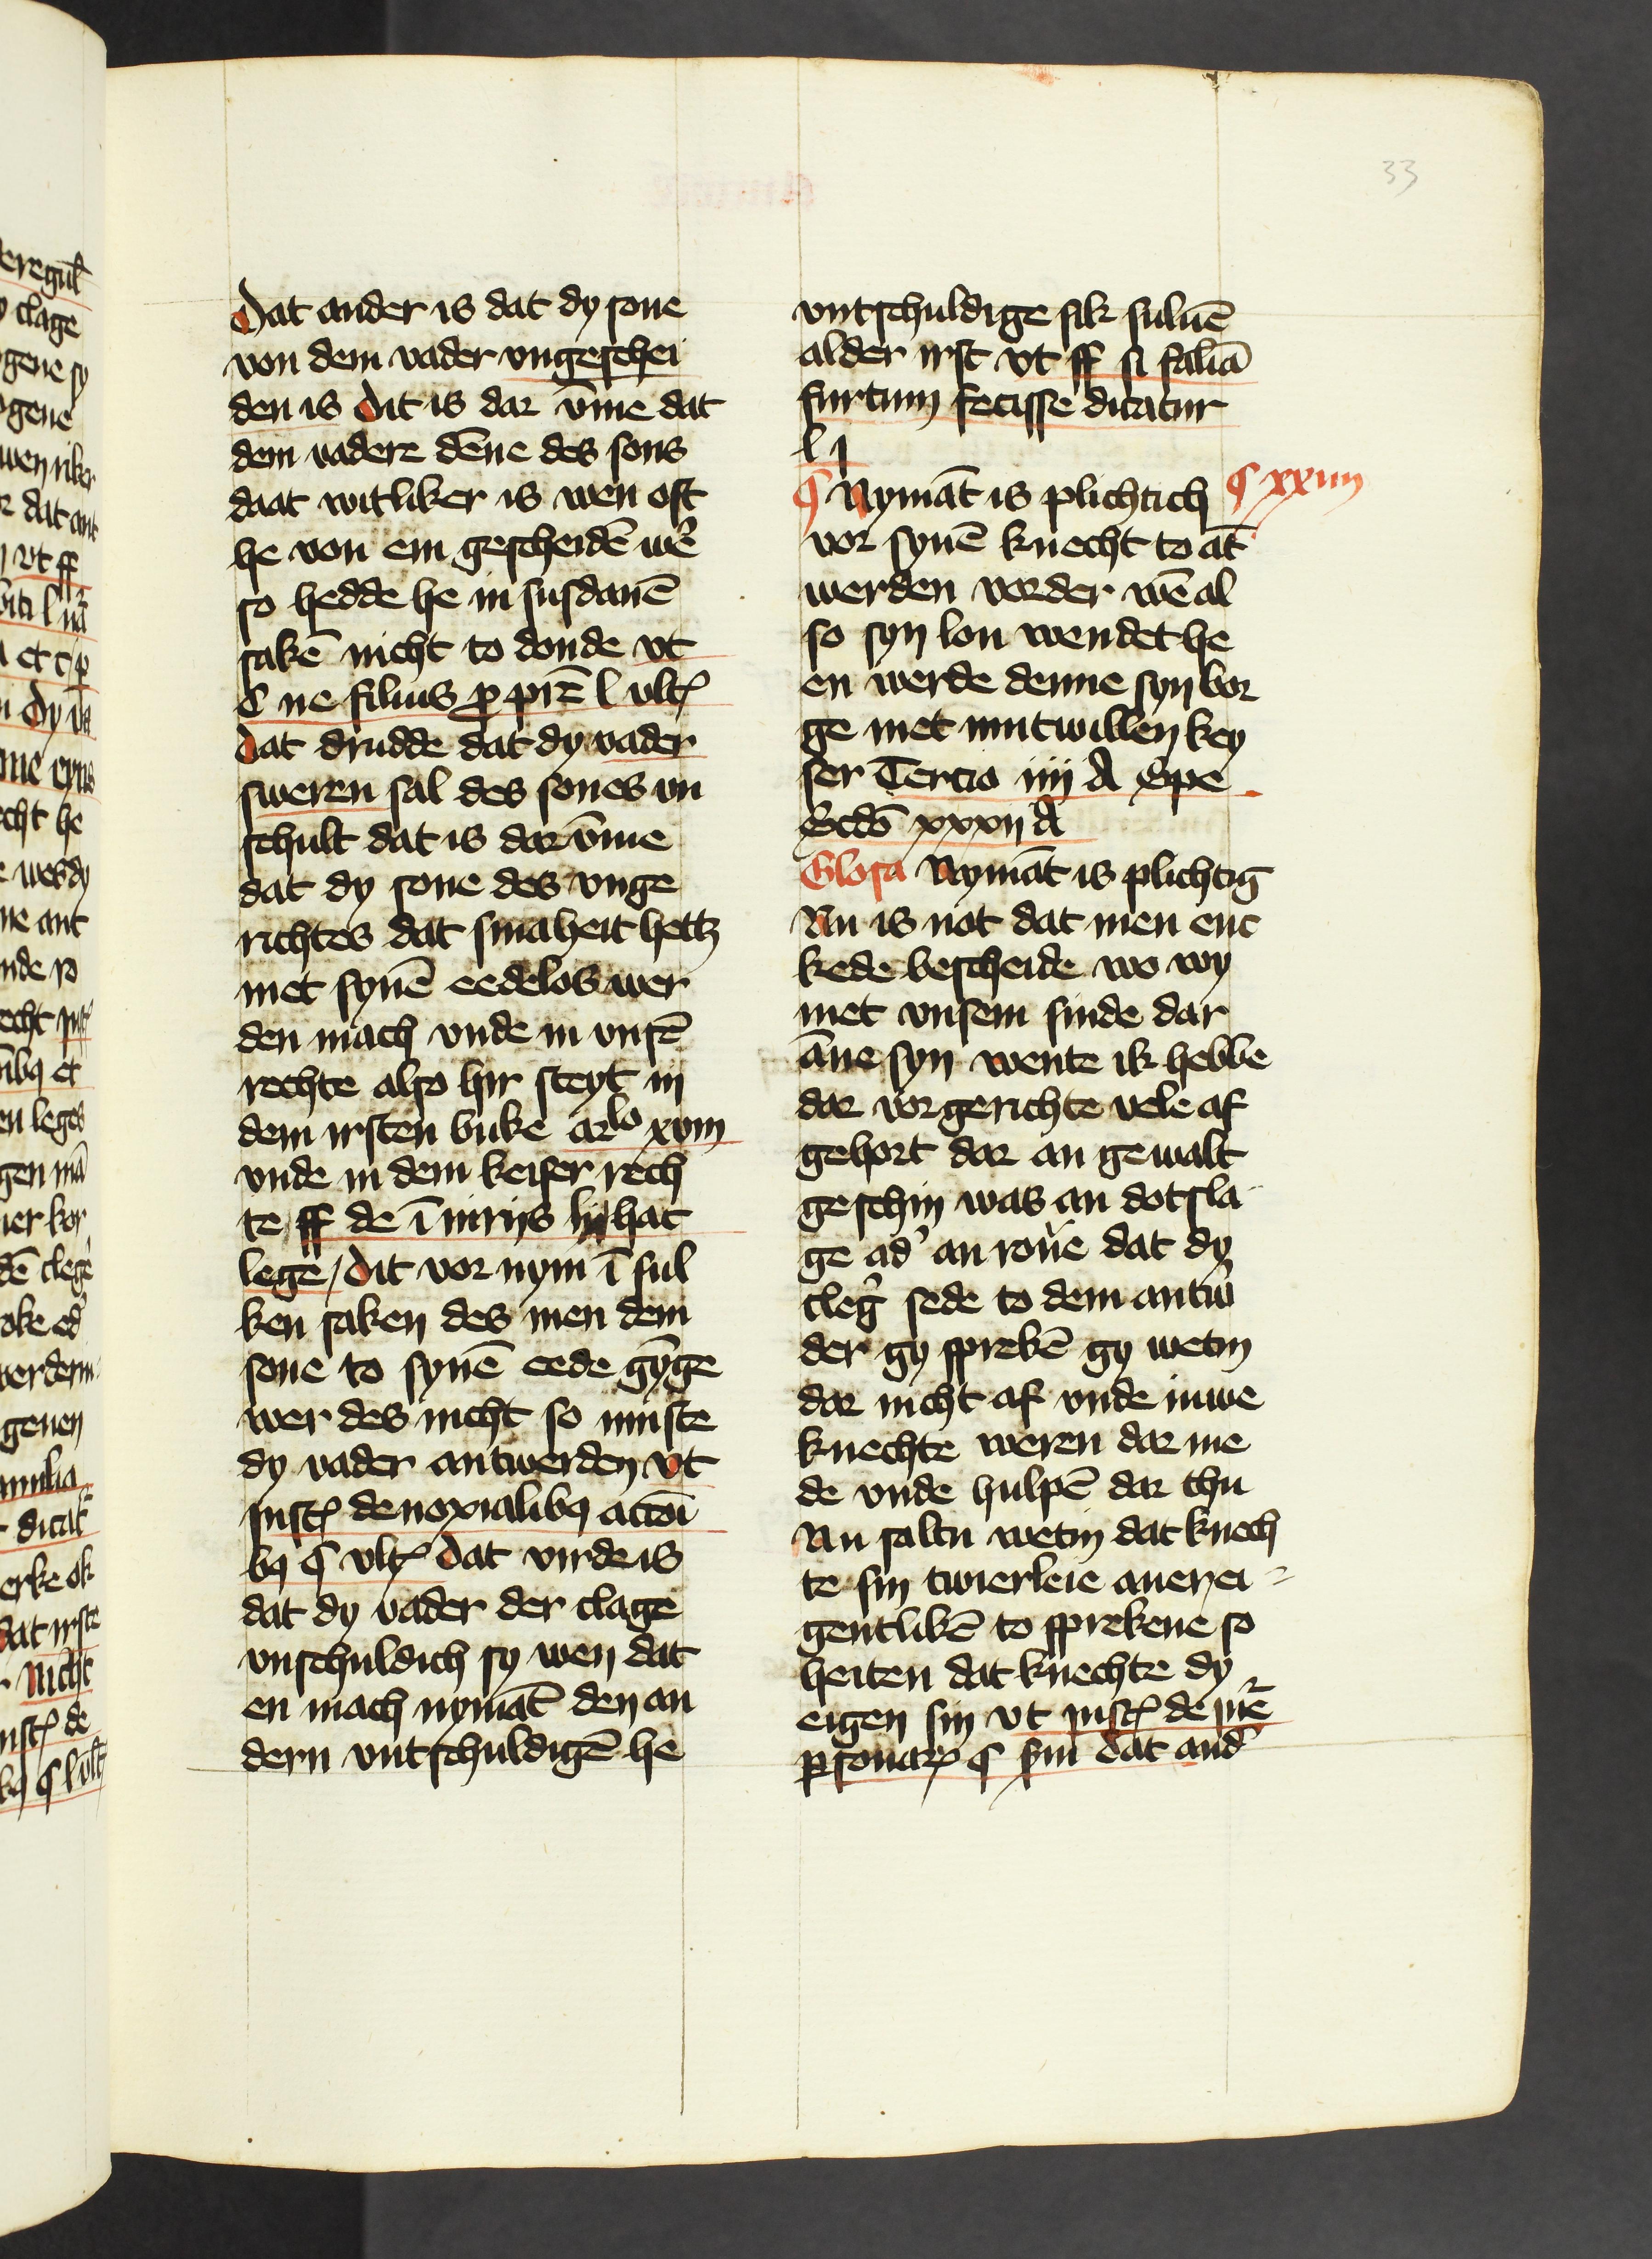 33
Dat ander is dat dy sone
von dem vader vngeschei
den is Dit is dar v̄me dat
dem vadere dēne des sons
daat witliker is wen oft
he von em gescheidē we᷑
so hedde he in susdanē
sakē nicht to donde vt
C ne filius ꝓ pr̄e l vltꝭ
Dat drudde dat dy vader
sweren sal des sones vn
schult dat is dar v̄me
dat dy sone des vnge
richtes dat smaheit hettꝫ
met synē eedelos wer
den mach vnde in vnsē
rechte also hir steyt in
dem irsten buke arlo xviii
vnde in dem keiser rech
te ff de ī iuriis hac
lege / Dit vor nym ī sul
ken saken des men dem
sone to synē eede gy̅ge
wer des nicht so muste
dy vader antwerden vt
instꝭ de noxialibꝫ actōi
bꝫ ¶ vltꝭ Dat virde is
dat dy vader der clage
vnschuldich sy wen dat
en mach nymāt den an
dern vntschuldigē he
vntschuldige sik suluē
alder irst vt ff si faliā
furtum fecisse dicatur
l j
¶ Nymāt is plichtich ¶ xxiiii
vor synē knecht to āt
werden vorder wē al
so syn lon wendet he
en werde denne syn bor
ge met mutwillen key
ser Tercio iiii A Spe
Scdō xxxii A
Glosa Nymāt is plichtig
Nu is not dat men enc
kede bescheide wo wy
met vnsem sinde dar
āne syn wente ik hebbe
dar vor gerichte vele af
gehort dar an gewalt
geschin was an dotsla
ge ad᾽ an roue dat dy
cleg᾽ sede to dem antw᾽
der gy sprekē gy wetin
dar nicht af vnde iuwe
knechte weren dar me
de vnde hulpē dar thu
Nu saltu wetin dat knech
te sin twierleie auer ei
gentlikē to sprekene so
heiten dat knechte dy
eigen sin vt instꝭ de iur̄e
ꝑsonarꝭ ¶ p̄m Dat and᾽